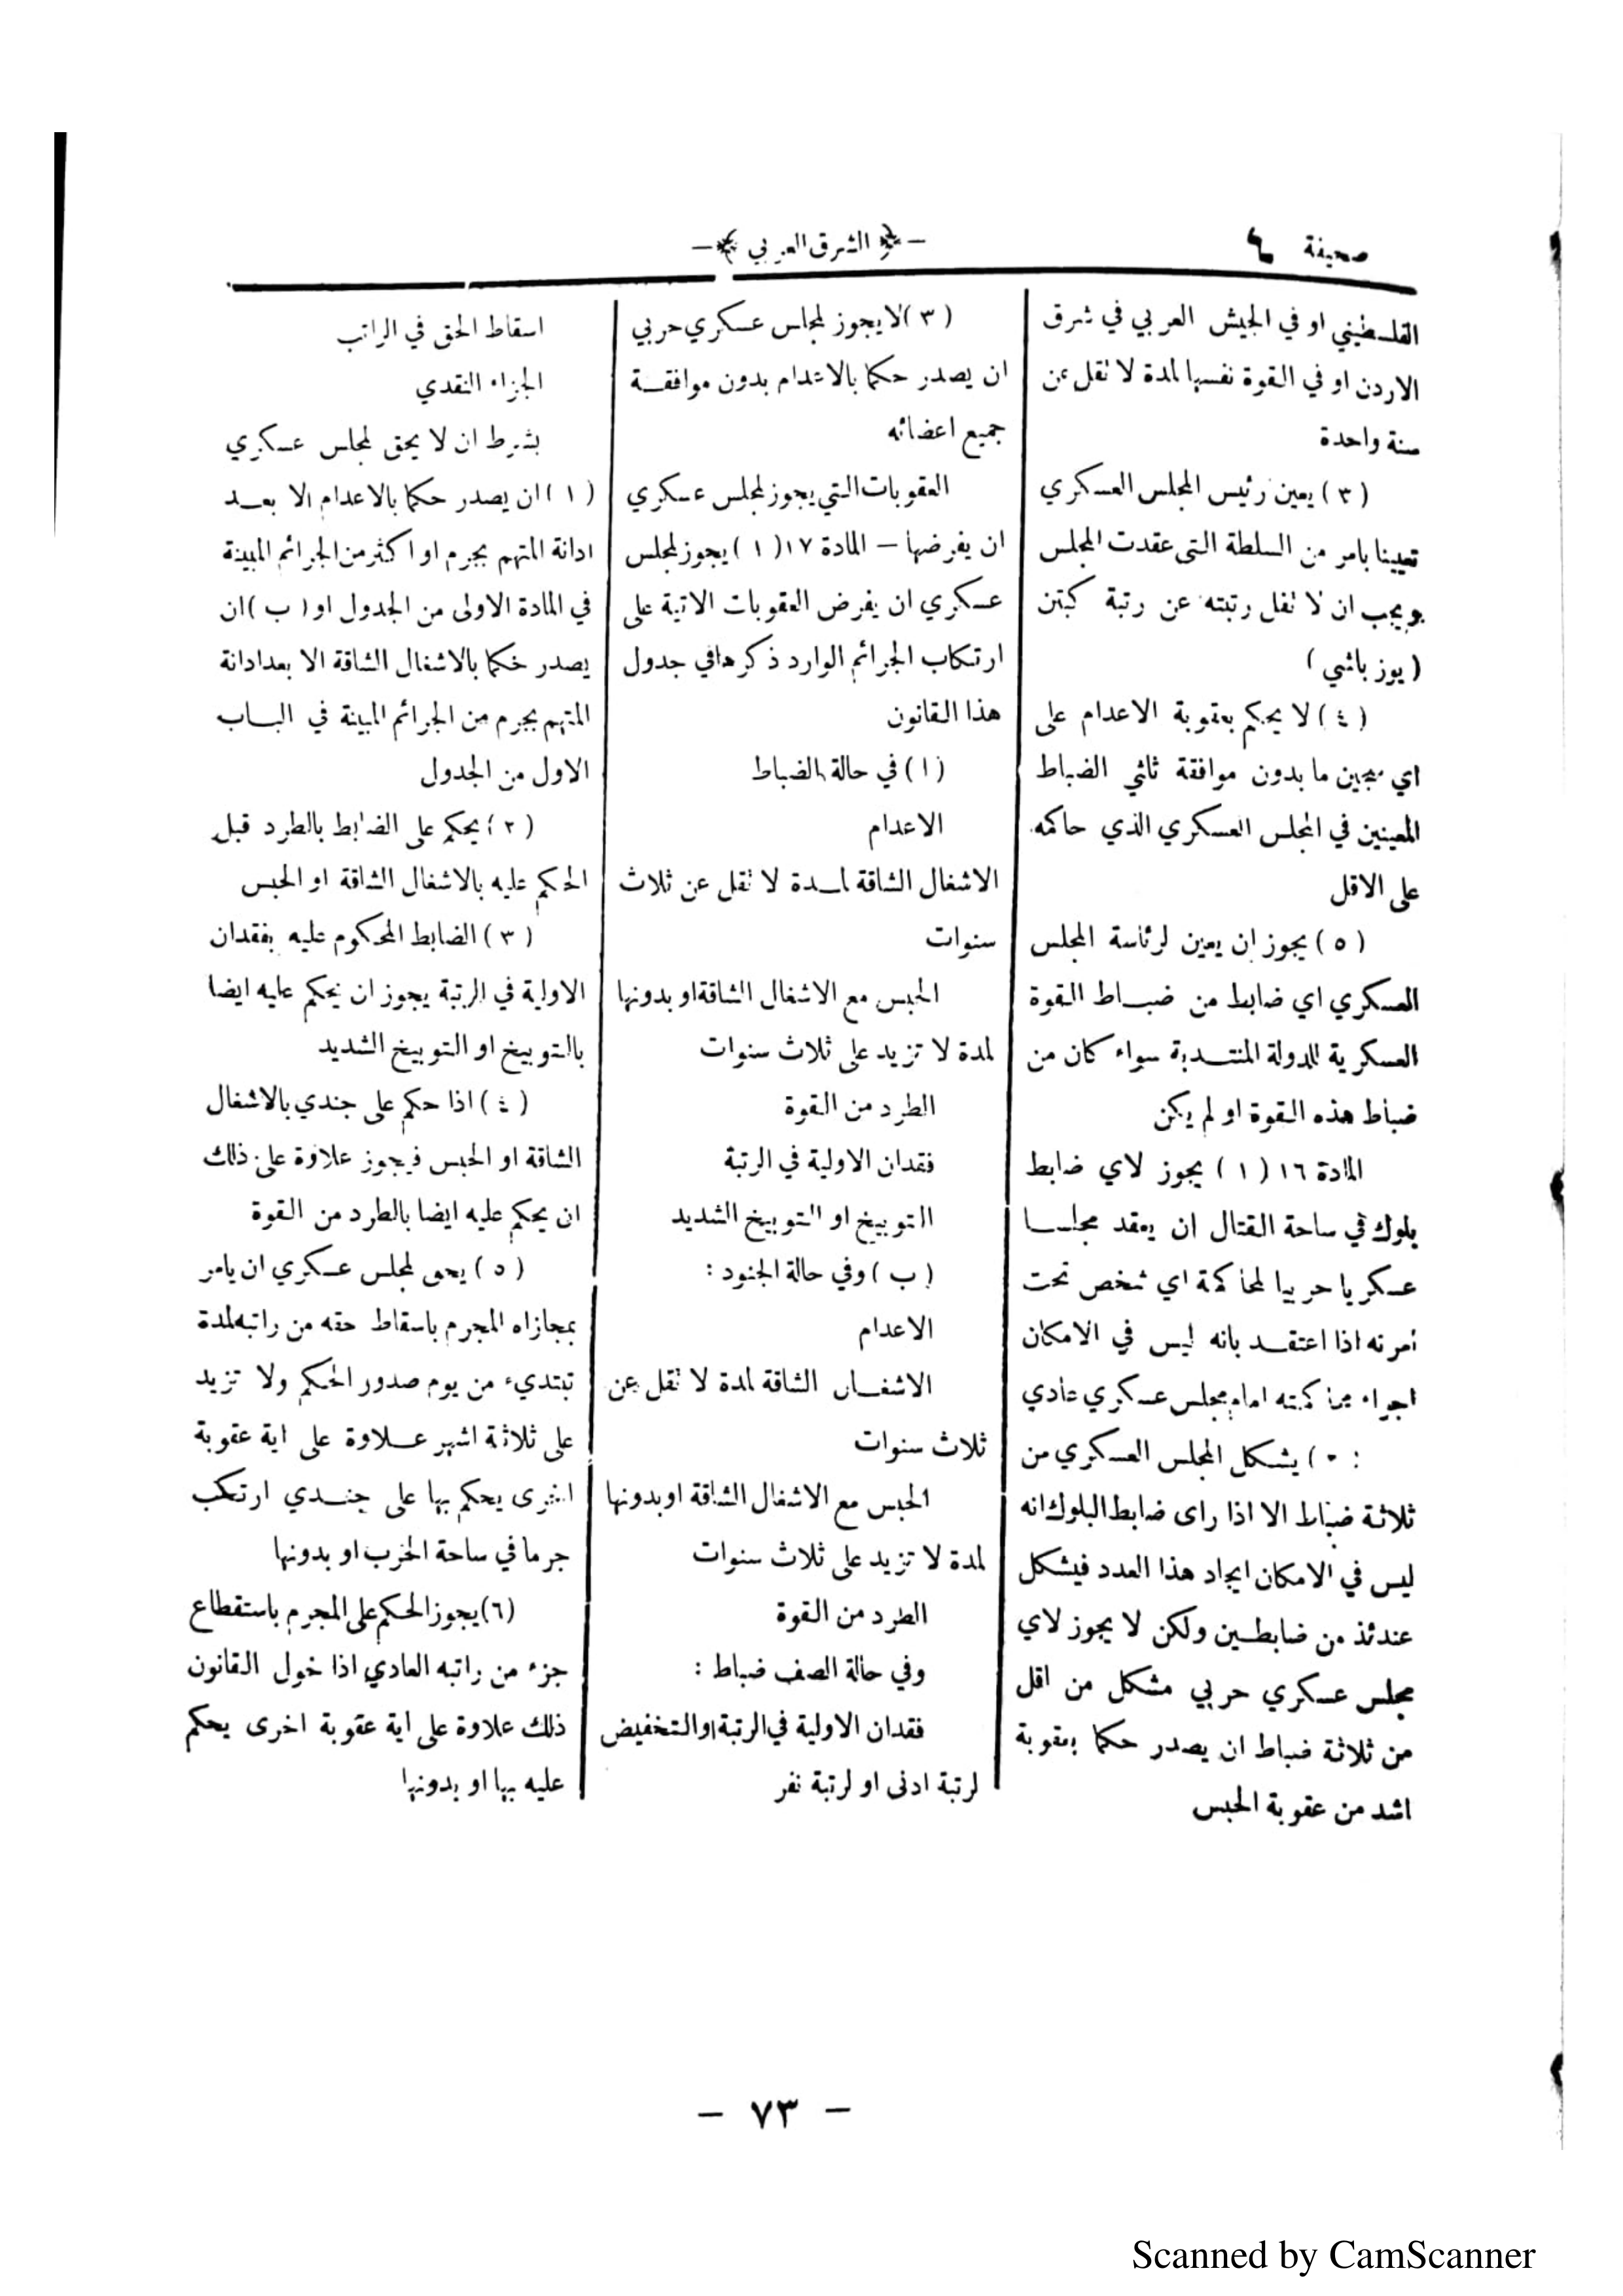 صحيفة ٦
— ﴿ الشرق العربي ﴾ —
الفلسطيني او في الجيش العربي في شرق
الاردن او في القوة نفسها لمدة لا تقل عن
سنة واحدة
( ٣ ) يعين رئيس المجلس العسكري
تعيينا بامر من السلطة التى عقدت المجلس
ويجب ان لا تقل رتبته عن رتبة كبتن
( يوزباشي )
( ٤ ) لا يحكم بعقوبة الاعدام على
اي سجين ما بدون موافقة ثلثي الضباط
المعينين في المجلس العسكري الذي حاكمه
على الاقل
( ٥ ) يجوز ان يعين لرئاسة المجلس
العسكري اي ضابط من ضباط القوة
العسكرية للدولة المنتدبة سواء كان من
ضباط هذه القوة او لم يكن
المادة ١٦ ( ١ ) يجوز لاي ضابط
بلوك في ساحة القتال ان يعقد مجلسا
عسكريا حربيا لمحاكمة اي شخص تحت
امرته اذا اعتقد بانه ليس في الامكان
اجراء محاكمته امام مجلس عسكري عادي
) يشكل المجلس العسكري من
ثلاثة ضباط الا اذا راى ضابط البلوك انه
ليس في الامكان ايجاد هذا العدد فيشكل
عندئذ من ضابطين ولكن لا يجوز لاي
مجلس عسكري حربي مشكل من اقل
من ثلاثة ضباط ان يصدر حكما بعقوبة
اشد من عقوبة الحبس
( ٣ ) لا يجوز لمجلس عسكري حربي
ان يصدر حكما بالاعدام بدون موافقة
جميع اعضائه
العقوبات التي يجوز لمجلس عسكري
ان يفرضها — المادة ١٧ ( ١ ) يجوز لمجلس
عسكري ان يفرض العقوبات الاتية على
ارتكاب الجرائم الوارد ذكرها في جدول
هذا القانون
( ا ) في حالة الضباط
الاعدام
الاشغال الشاقة لمدة لا تقل عن ثلاث
سنوات
الحبس مع الاشغال الشاقة او بدونها
لمدة لا تزيد على ثلاث سنوات
الطرد من القوة
فقدان الاولية في الرتبة
التوبيخ او التوبيخ الشديد
( ب ) وفي حالة الجنود :
الاعدام
الاشغال الشاقة لمدة لا تقل عن
ثلاث سنوات
الحبس مع الاشغال الشاقة او بدونها
لمدة لا تزيد على ثلاث سنوات
الطرد من القوة
وفي حالة الصف ضباط :
فقدان الاولية في الرتبة او التخفيض
لرتبة ادنى او لرتبة نفر
اسقاط الحق في الراتب
الجزاء النقدي
بشرط ان لا يحق لمجلس عسكري
( ١ ) ان يصدر حكما بالاعدام الا بعد
ادانة المتهم بجرم او اكثر من الجرائم المبينة
في المادة الاولى من الجدول او ( ب ) ان
يصدر حكما بالاشغال الشاقة الا بعد ادانة
المتهم بجرم من الجرائم المبينة في الباب
الاول من الجدول
( ٢ ) يحكم على الضابط بالطرد قبل
الحكم عليه بالاشغال الشاقة او الحبس
( ٣ ) الضابط المحكوم عليه بفقدان
الاولية في الرتبة يجوز ان يحكم عليه ايضا
بالتوبيخ او التوبيخ الشديد
( ٤ ) اذا حكم على جندي بالاشغال
الشاقة او الحبس فيجوز علاوة على ذلك
ان يحكم عليه ايضا بالطرد من القوة
( ٥ ) يحق لمجلس عسكري ان يامر
بمجازاه المجرم باسقاط حقه من راتبه لمدة
تبتديء من يوم صدور الحكم ولا تزيد
على ثلاثة اشهر علاوة على اية عقوبة
اخرى يحكم بها على جندي ارتكب
جرما في ساحة الحرب او بدونها
( ٦ ) يجوز الحكم على المجرم باستقطاع
جزء من راتبه العادي اذا خول القانون
ذلك علاوة على اية عقوبة اخرى يحكم
عليه بها او بدونها
— ٧٣ —
Scanned by CamScanner